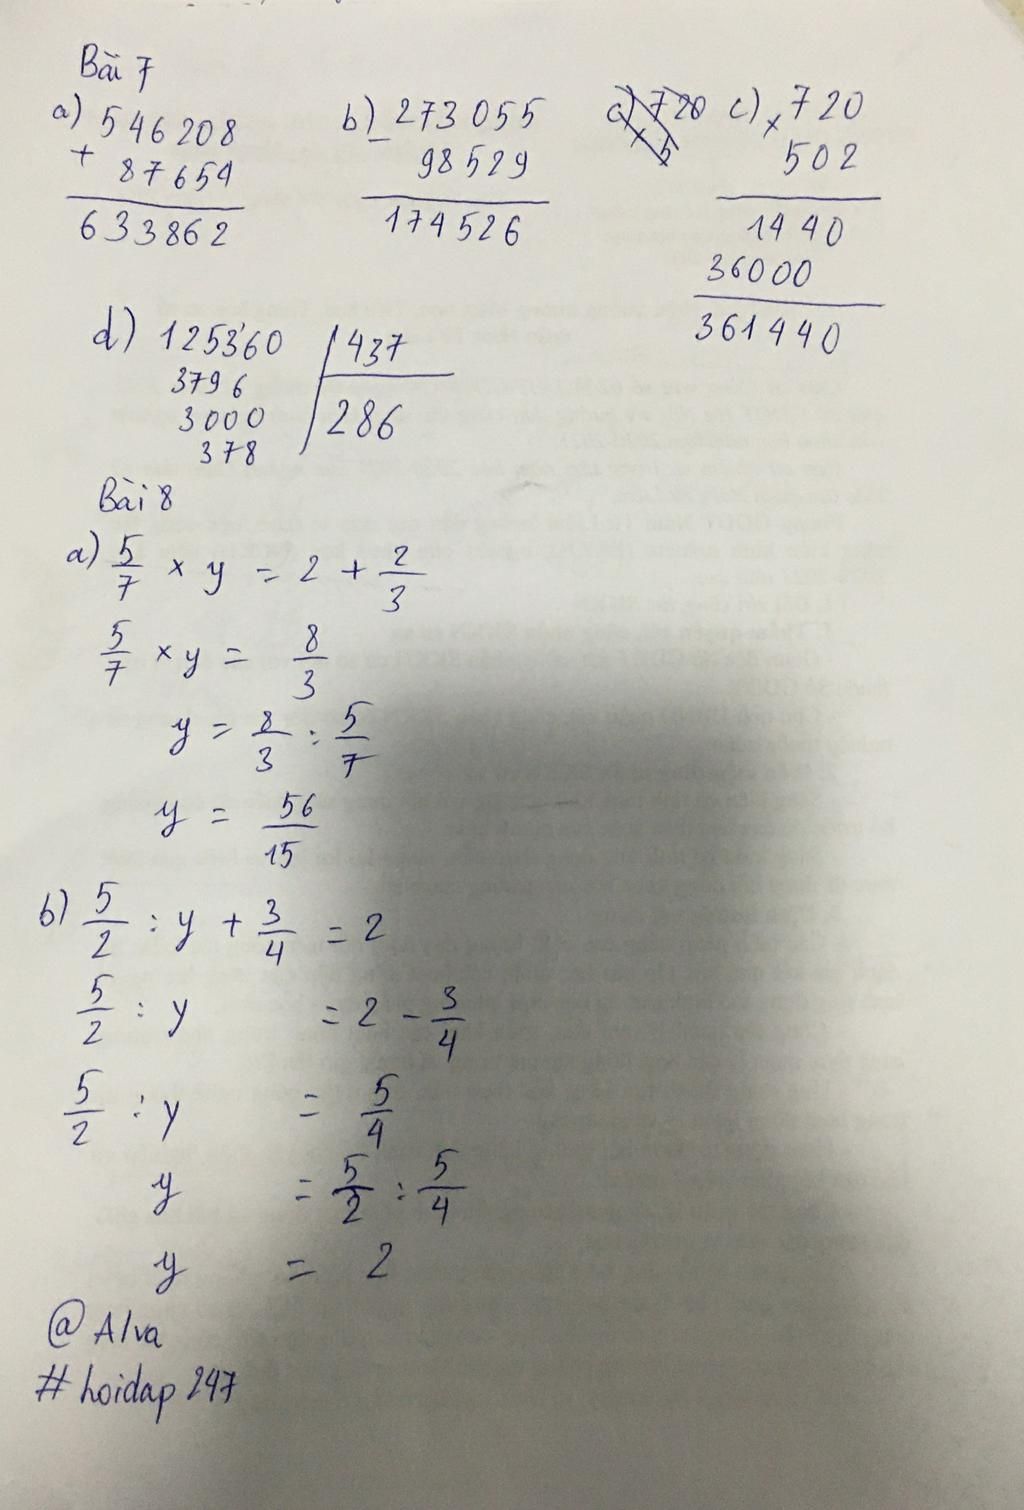 Bài 7
a) 546208
+ 87654
633862
b) 273055
- 98529
174526
c) 720
x 5
c) 720
x 502
1440
36000
361440
d) 125360 437
3796 286
3000
378
Bài 8
a) 5/7 x y = 2 + 2/3
5/7 x y = 8/3
y = 8/3 : 5/7
y = 56/15
b) 5/2 : y + 3/4 = 2
5/2 : y = 2 - 3/4
5/2 : y = 5/4
y = 5/2 : 5/4
y = 2
@Alva
#hoidap247